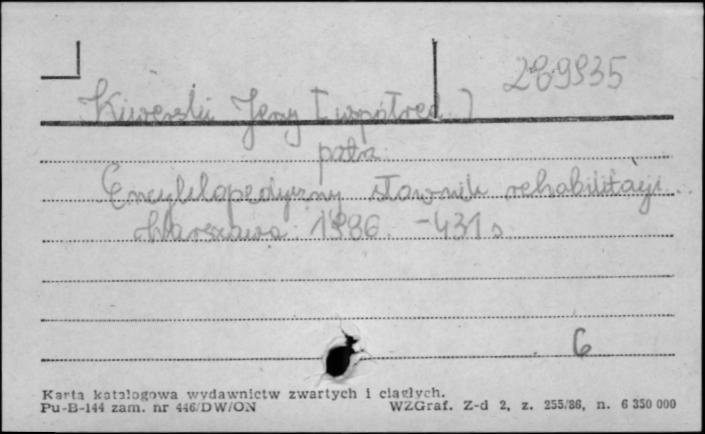 289935
Kiwerski Jerzy [współred.]
patrz
Encyklopedyczny słownik rehabilitacji.
Warszawa 1986. - 431 s
6
Karta katalogowa wydawnictw zwartych i ciągłych.
Pu-B-144 zam. nr 446/DW/ON WZGraf. Z-d 2, z. 255/86, n. 6 350 000